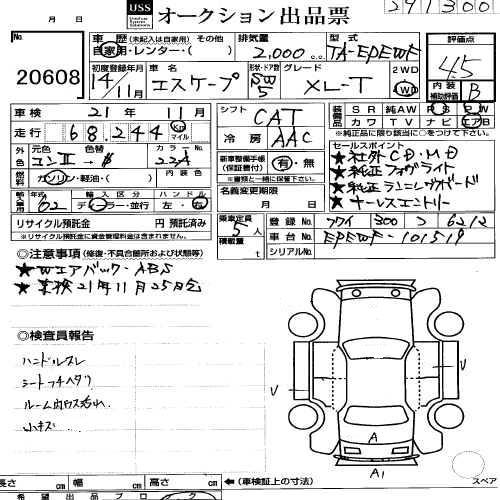 月 日
USS オークション出品票
291300
No.
20608
車歴 (未記入は自家用) その他
自家用・レンター・( )
排気量
2,000
型式
TA-EPEWF
評価点
4.5
初度登録年月
14年 11月
車名
エスケープ
形状・ドア数
SW
5
グレード
XL-T
2WD
4WD
内装
補助評価
B
車検 21年 11月
走行 68,244 Km マイル
シフト
CAT
冷房 AAC
装備品
SR 純AW PS PW
カワ TV ナビ エアB
※純正品に限り該当に○をつけて下さい
外色
元色 色替 カラーNo.
コン
22A
燃料
ガソリン・軽油・( )
内装色
新車整備手帳
(保証書付)
有・無
名義変更期限
月 日
セールスポイント
★社外CD・MD
★純正フォグライト
★純正ランニングボード
★キーレスエントリー
輸入車用
年式 02
輸入区分
ディーラー・並行
ハンドル
左・右
リサイクル預託金 円 預託済み
※リサイクル預託金に資金管理料金は含まれません。
乗車定員 5人
積載量 t
登録No. 300 6212
車台No. EPEWF-101519
シリアルNo.
◎注意事項 (修復・不具合箇所および状態等)
★Wエアバック・ABS
★車検21年11月25日迄
◎検査員報告
ハンドルスレ
シートフチヘタリ
ルーム内ウス汚れ
小キズ
V
V
A
A1
スペア
長さ cm 幅 cm 高さ cm (車検証上の寸法)
希望出品ブロック